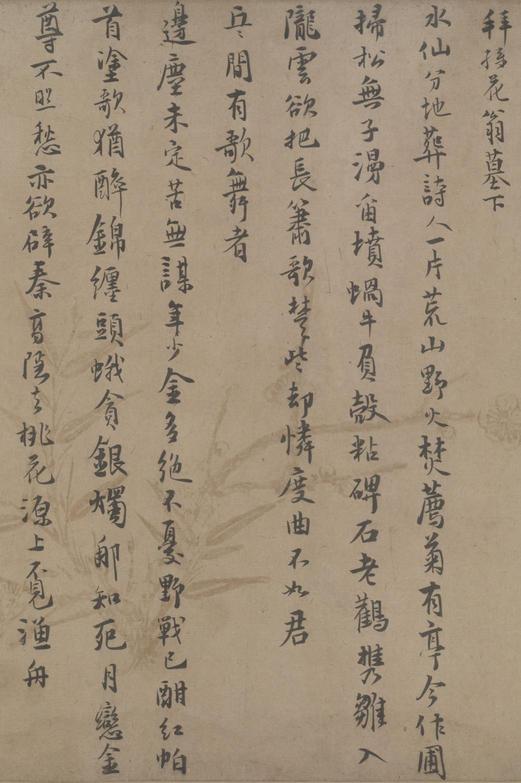 拜孫花翁墓下
水仙分地葬詩人一片荒山野火焚薦菊有亭今作圃
掃松無子漫留墳蝸牛負殼粘碑石老鸛携雛入
隴雲欲把長簫歌楚些却憐度曲不如君
兵間有歌舞者
邊塵未定苦無謀年少金多絶不憂野戰已酣紅帕
首塗歌猶醉錦纏頭蛾貪銀燭那知死月戀金
尊不照愁亦欲辟秦高隱去桃花源上覓漁舟